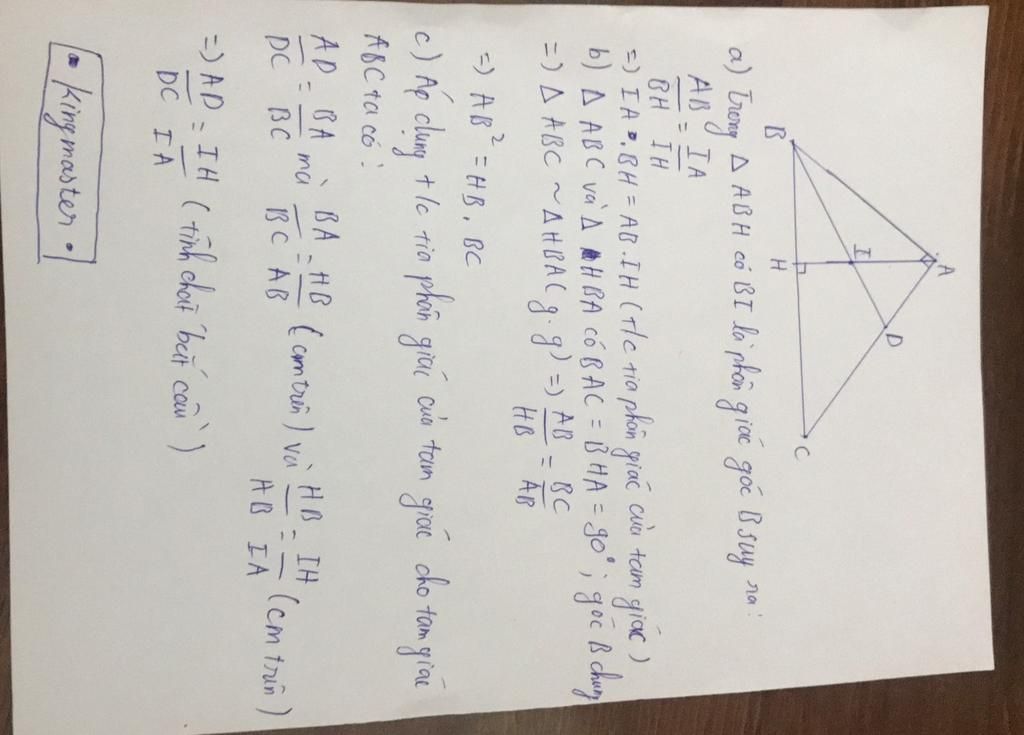 A
B
I
D
H
C
a) Trong Δ ABH có BI là phân giác góc B suy ra:
AB/BH = IA/IH
=) IA . BH = AB . IH (t/c tia phân giác của tam giác)
b) Δ ABC và Δ HBA có BAC = BHA = 90° ; góc B chung
=) Δ ABC ~ Δ HBA (g.g) =) AB/HB = BC/AB
=) AB² = HB . BC
c) Áp dụng t/c tia phân giác của tam giác cho tam giác
ABC ta có:
AD/DC = BA/BC mà BA/BC = HB/AB (cm trên) và HB/AB = IH/IA (cm trên)
=) AD/DC = IH/IA (tính chất bắt cầu)
• Kingmaster •